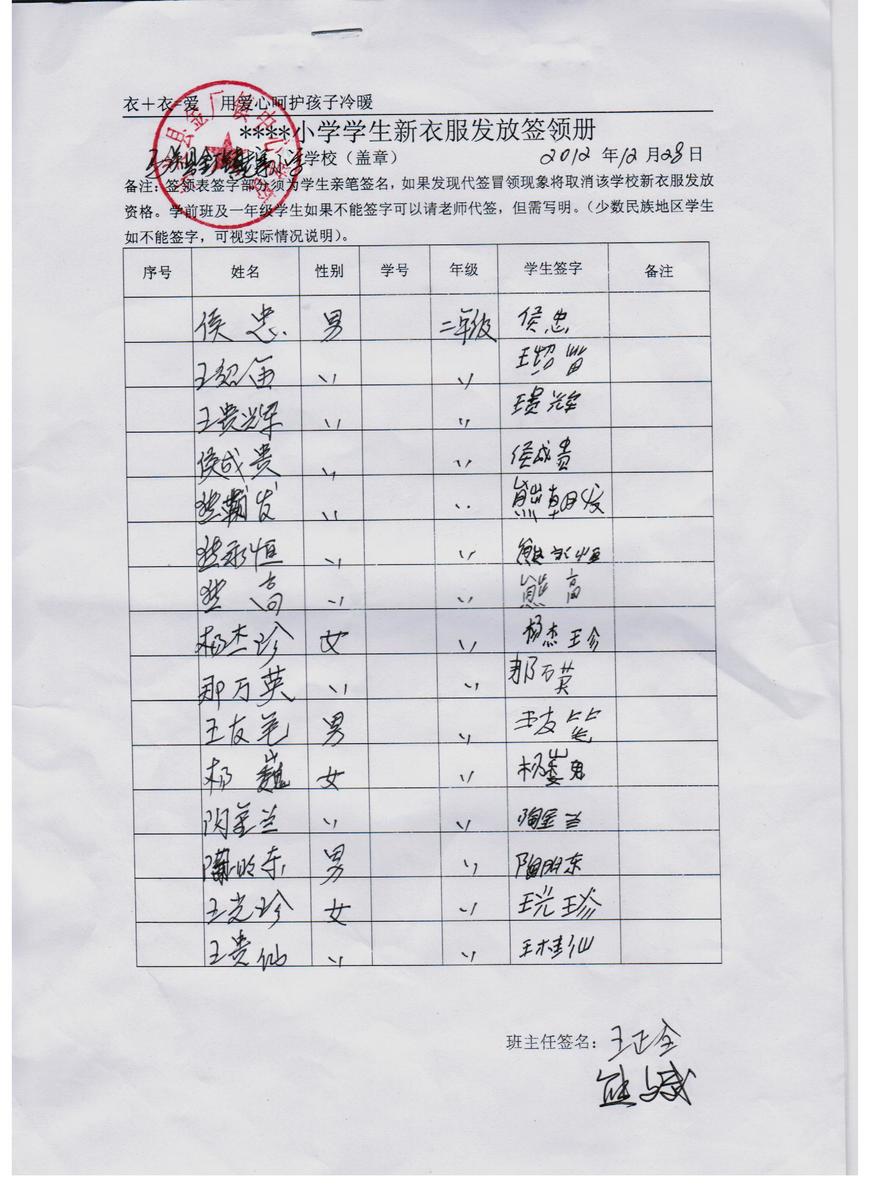 衣+衣=爱 用爱心呵护孩子冷暖
****小学学生新衣服发放签领册
学校（盖章） 2012 年 12 月 28 日
备注：签领表签字部分须为学生亲笔签名，如果发现代签冒领现象将取消该学校新衣服发放
资格。学前班及一年级学生如果不能签字可以请老师代签，但需写明。（少数民族地区学生
如不能签字，可视实际情况说明）。
序号 姓名 性别 学号 年级 学生签字 备注
侯忠 男 二年级 侯忠
王 〃 〃 王
王贵辉 〃 〃 王贵辉
侯成贵 〃 〃 侯成贵
熊朝发 〃 〃 熊朝发
熊永恒 〃 〃 熊永恒
熊高 〃 〃 熊高
杨杰珍 女 〃 杨杰珍
那万英 〃 〃 那万英
王友笔 男 〃 王友笔
杨巍 女 〃 杨巍
陶金兰 〃 〃 陶金兰
陶明东 男 〃 陶明东
王光珍 女 〃 王光珍
王贵仙 〃 〃 王桂仙
班主任签名：王正全